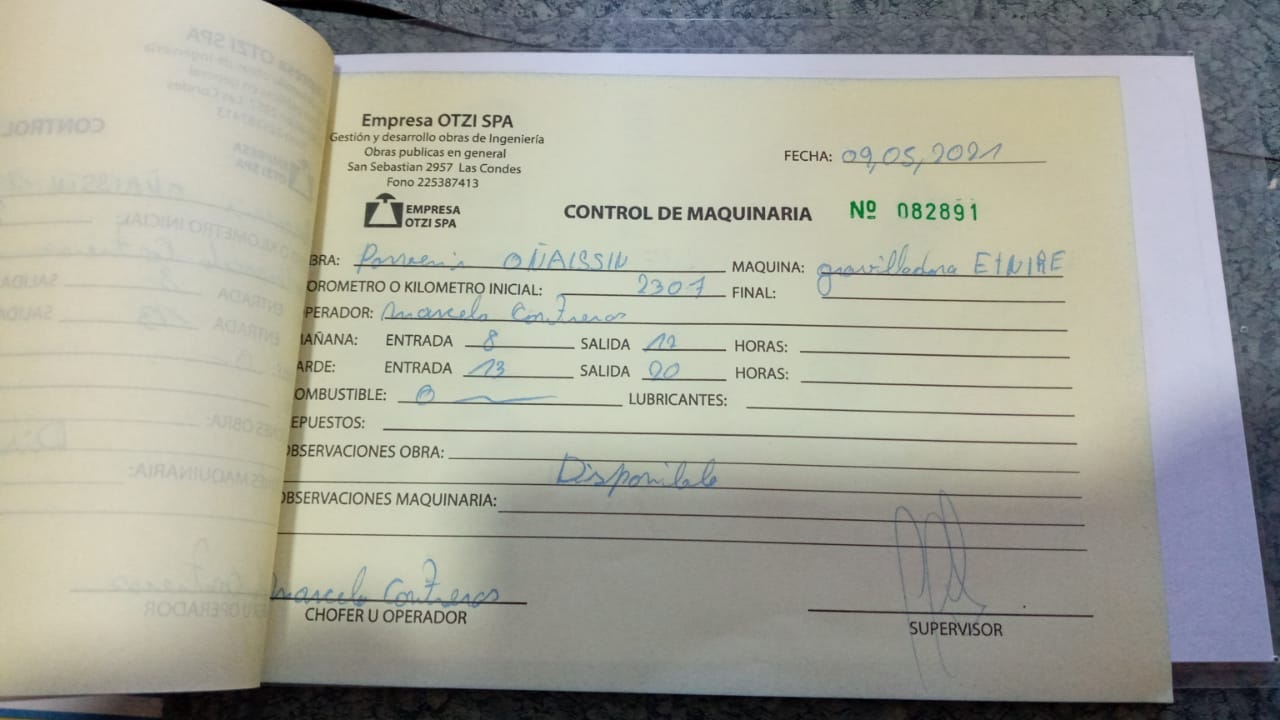 Empresa OTZI SPA
Gestión y desarrollo obras de Ingeniería
Obras publicas en general
San Sebastian 2957 Las Condes
Fono 225387413
EMPRESA
OTZI SPA
FECHA: 09,05,2021
CONTROL DE MAQUINARIA Nº 082891
BRA: OÑAISSIN MAQUINA: gravilladora
OROMETRO O KILOMETRO INICIAL: 2307 FINAL:
PERADOR: Marcelo Contreras
AÑANA: ENTRADA 8 SALIDA 12 HORAS:
ARDE: ENTRADA 13 SALIDA 20 HORAS:
OMBUSTIBLE: 0 LUBRICANTES:
EPUESTOS:
OBSERVACIONES OBRA:
Disponible
OBSERVACIONES MAQUINARIA:
Marcelo Contreras
CHOFER U OPERADOR
SUPERVISOR